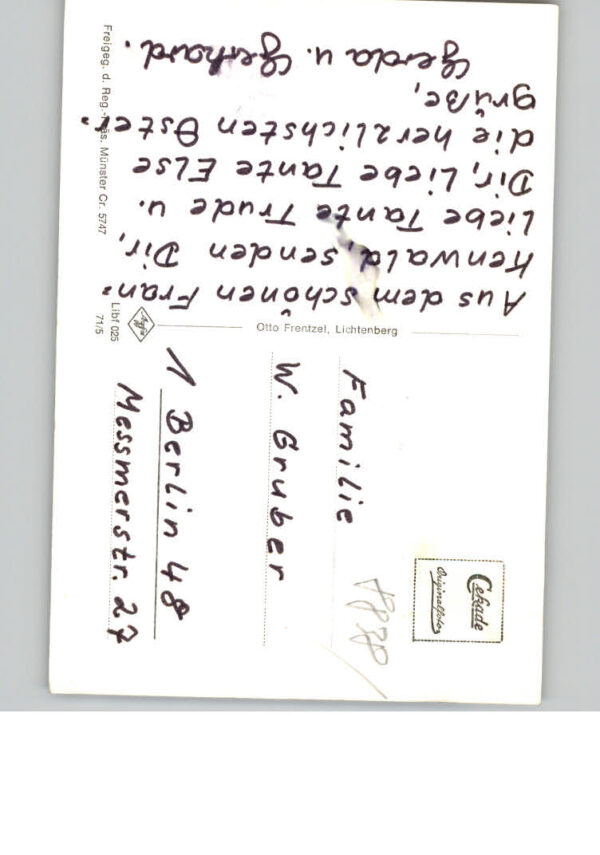 Aus dem schönen Fran=
kenwald, senden Dir,
Liebe Tante Trude u.
Dir, Liebe Tante Else
die herzlichsten Oster=
grüße,
Gerda u. Gerhard.
Freigeg. d. Reg.-Präs. Münster Cr. 5747
Agfa
Libf 025
71/5
Otto Frentzel, Lichtenberg
Cekade
Originalfoto
Familie
W. Gruber
1 Berlin 48
Messmerstr. 27